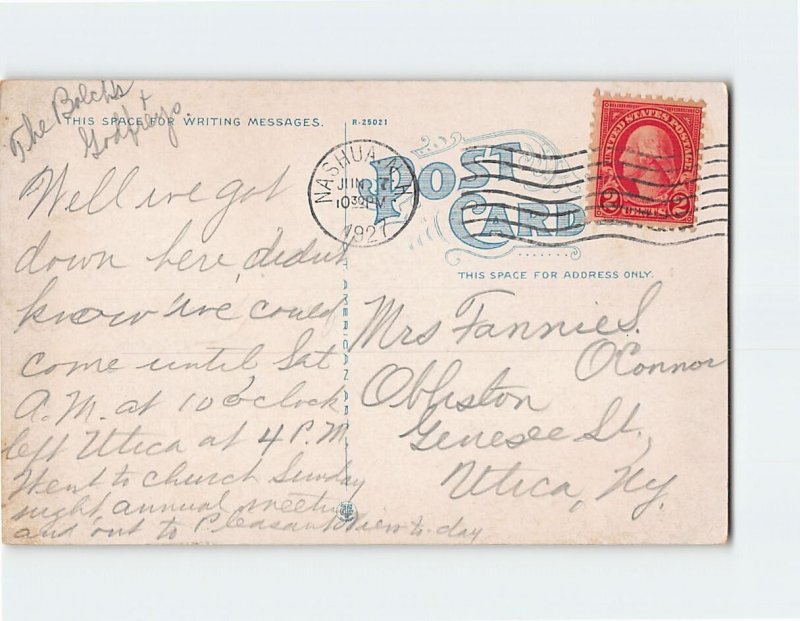 The Bolchs
+
Godfroys.
THIS SPACE FOR WRITING MESSAGES.
R-25021
POST CARD
NASHUA, N.H.
JUN 7
10 30 PM
1927
UNITED STATES POSTAGE
2 CENTS 2
THIS SPACE FOR ADDRESS ONLY.
Well we got
down here, didn't
know we could
come until Sat
A.M. at 10 o'clock
left Utica at 4 P.M.
Went to church Sunday
night annual meeting
and out to Pleasant View to-day
AMERICAN ART
Mrs Fannie S.
O'Connor
Obliston
Genesee St.,
Utica, Ny.